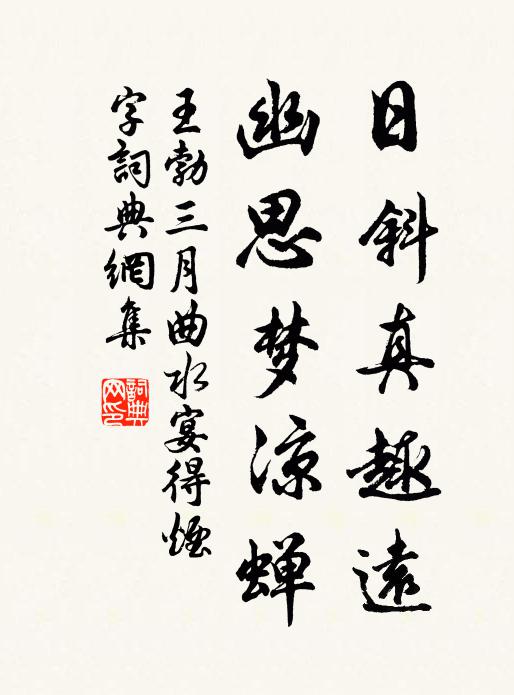 日斜真趣遠
幽思梦涼蝉
王勃三月曲水宴得煙
字詞典網集
詞典
网印